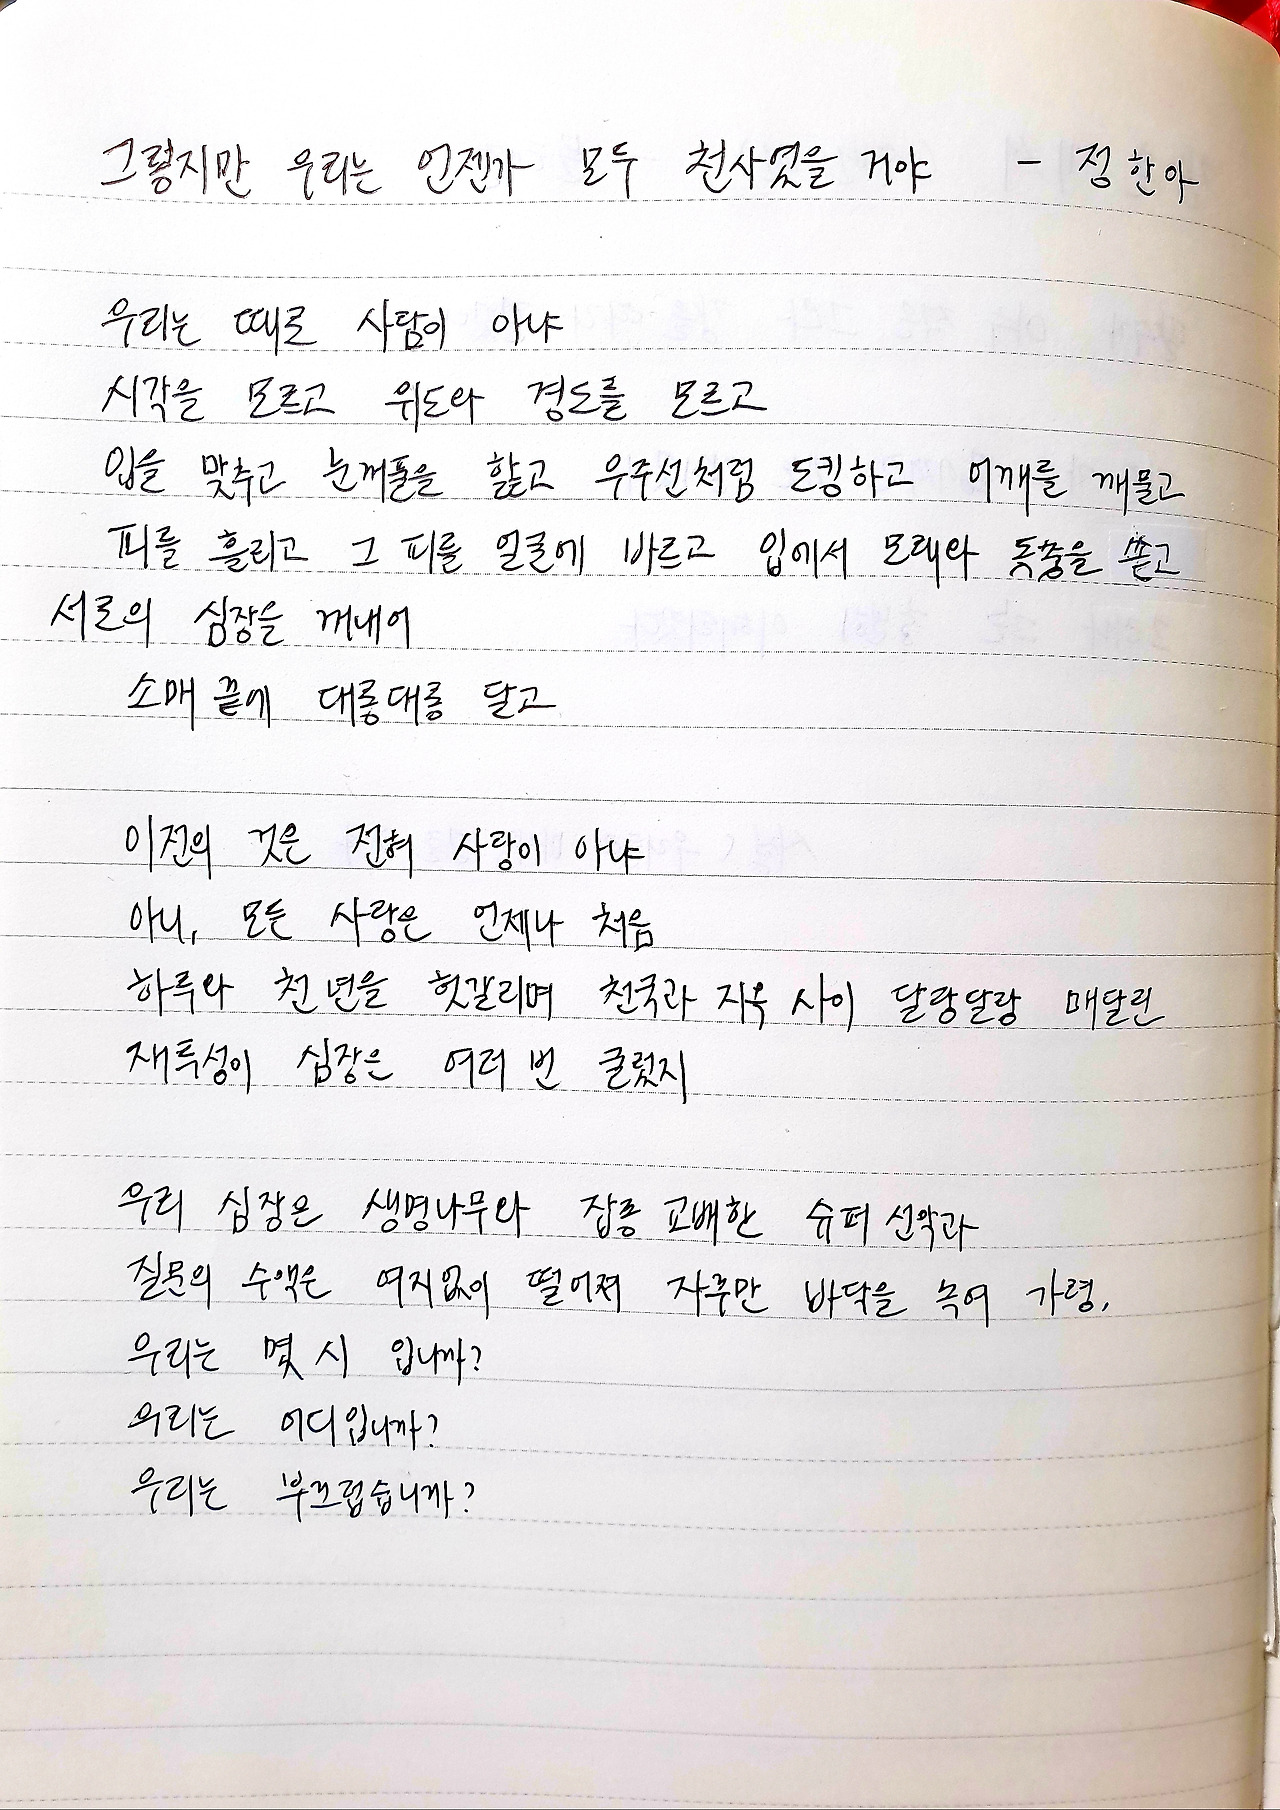 그렇지만 우리는 언젠가 모두 천사였을 거야 - 정한아
우리는 때로 사람이 아냐
시각을 모르고 위도와 경도를 모르고
입을 맞추고 눈꺼풀을 핥고 우주선처럼 도킹하고 어깨를 깨물고
피를 흘리고 그 피를 얼굴에 바르고 입에서 모래와 독충을 쏟고
서로의 심장을 꺼내어
소매 끝에 대롱대롱 달고
이전의 것은 전혀 사랑이 아냐
아니, 모든 사랑은 언제나 처음
하루와 천 년을 헛갈리며 천국과 지옥 사이 달랑달랑 매달린
재투성이 심장은 여러 번 굴렀지
우리 심장은 생명나무와 잡종 교배한 슈퍼 선악과
질문의 수액은 여지없이 떨어져 자루만 바닥을 녹여 가령,
우리는 몇 시 입니까?
우리는 어디입니까?
우리는 부끄럽습니까?